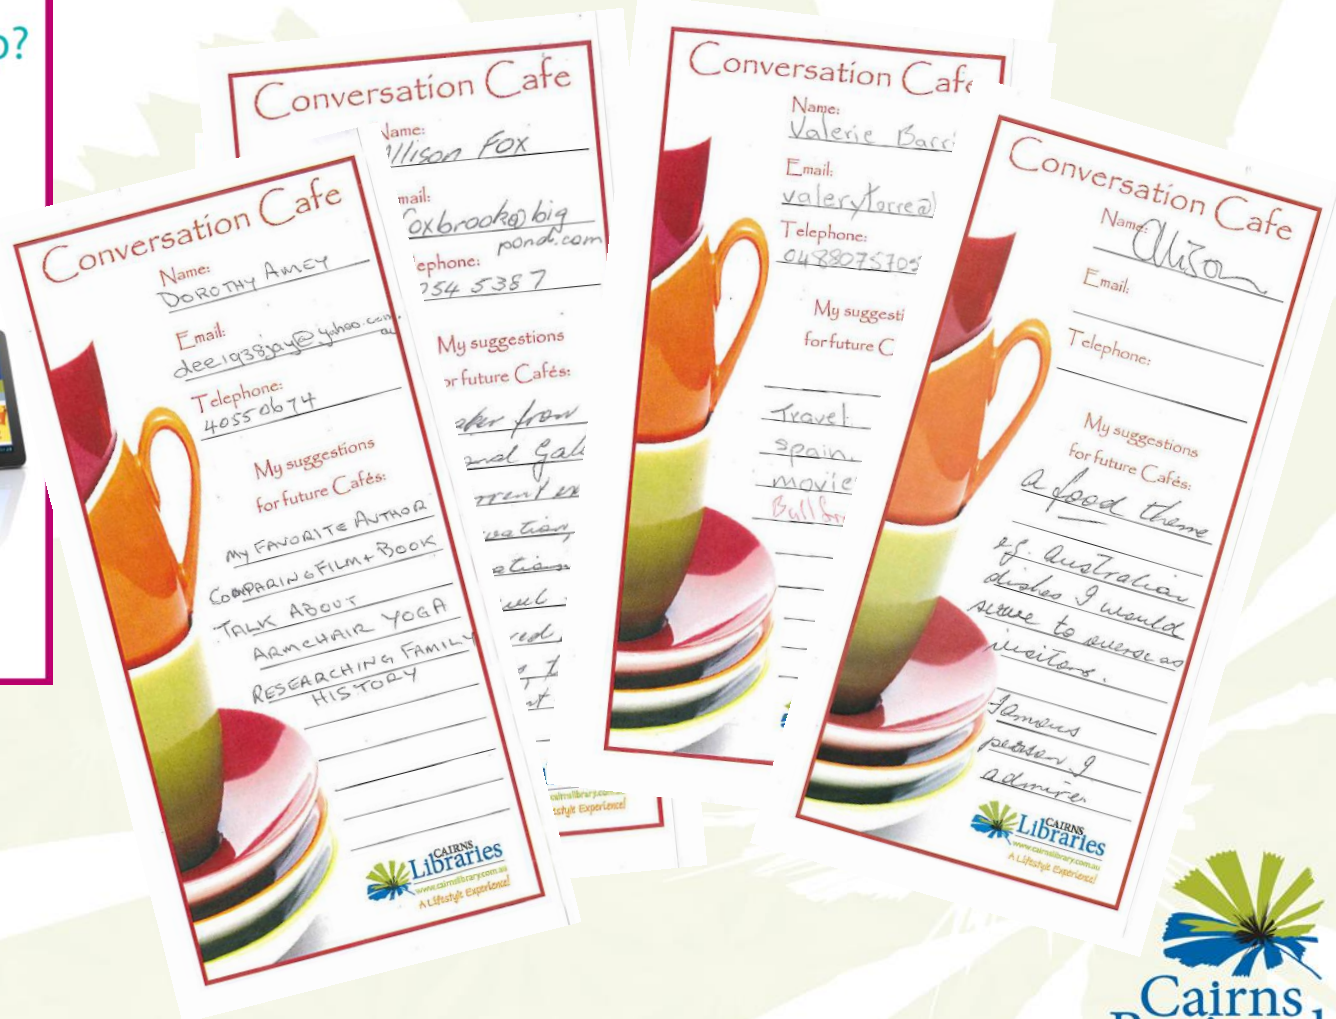 Conversation Cafe
Name:
DOROTHY AMEY
Email:
dee1938jay@yahoo.com.
au
Telephone:
40550674
My suggestions
for future Cafés:
MY FAVORITE AUTHOR
COMPARING FILM + BOOK
TALK ABOUT
ARMCHAIR YOGA
RESEARCHING FAMILY
HISTORY
CAIRNS
Libraries
www.cairnslibrary.com.au
A Lifestyle Experience!
Conversation Cafe
Name:
llison Fox
mail:
oxbrook@big
pond.com
ephone:
254 5387
My suggestions
or future Cafés:
from
and
Conversation Cafe
Name:
Valerie Barr
Email:
valerytorre@
Telephone:
0488075705
My suggesti
for future C
Travel
Spain
movie
Conversation Cafe
Name:
Allison
Email:
Telephone:
My suggestions
for future Cafés:
a food theme
eg. Australian
dishes I would
serve to overseas
visitors.
Famous
person I
admire.
CAIRNS
Libraries
www.cairnslibrary.com.au
A Lifestyle Experience!
Cairns